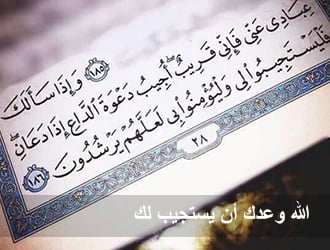 ۝١٨٥ وَإِذَا سَأَلَكَ
عِبَادِى عَنِّى فَإِنِّى قَرِيبٌ ۖ أُجِيبُ دَعْوَةَ ٱلدَّاعِ إِذَا دَعَانِ ۖ
فَلْيَسْتَجِيبُوا۟ لِى وَلْيُؤْمِنُوا۟ بِى لَعَلَّهُمْ يَرْشُدُونَ ۝١٨٦
٢٨
الله وعدك أن يستجيب لك